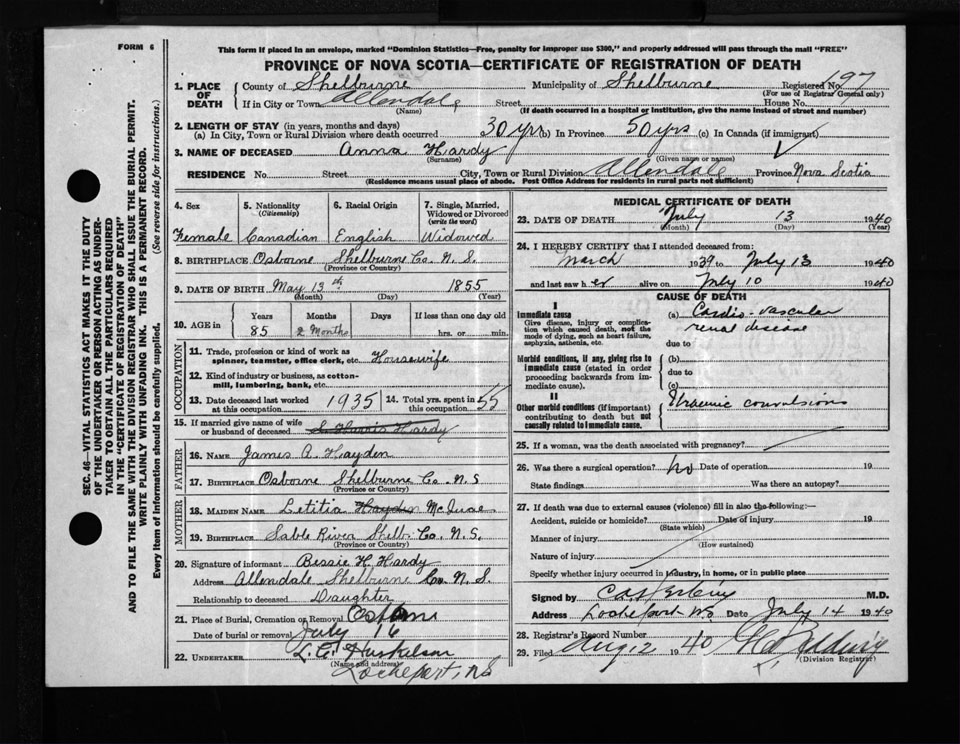 FORM 6
This form if placed in an envelope, marked "Dominion Statistics—Free, penalty for improper use $300," and properly addressed will pass through the mail "FREE"
PROVINCE OF NOVA SCOTIA—CERTIFICATE OF REGISTRATION OF DEATH
SEC. 46—VITAL STATISTICS ACT MAKES IT THE DUTY
OF THE UNDERTAKER OR PERSON ACTING AS UNDER-
TAKER TO OBTAIN ALL THE PARTICULARS REQUIRED
IN THE "CERTIFICATE OF REGISTRATION OF DEATH"
AND TO FILE THE SAME WITH THE DIVISION REGISTRAR WHO SHALL ISSUE THE BURIAL PERMIT.
WRITE PLAINLY WITH UNFADING INK. THIS IS A PERMANENT RECORD.
Every item of information should be carefully supplied. (See reverse side for instructions.)
1. PLACE OF DEATH County of Shelburne Municipality of Shelburne Registered No. 197
(For use of Registrar General only)
If in City or Town Allendale Street House No.
(Name) (If death occurred in a hospital or institution, give the name instead of street and number)
2. LENGTH OF STAY (in years, months and days)
(a) In City, Town or Rural Division where death occurred 30 yrs (b) In Province 50 yrs (c) In Canada (if immigrant)
3. NAME OF DECEASED Anna Hardy
(Surname) (Given name or names)
RESIDENCE No. Street City, Town or Rural Division Allendale Province Nova Scotia
(Residence means usual place of abode. Post Office Address for residents in rural parts not sufficient)
4. Sex 5. Nationality (Citizenship) 6. Racial Origin 7. Single, Married, Widowed or Divorced (write the word)
Female Canadian English Widowed
8. BIRTHPLACE Osborne Shelburne Co. N. S.
(Province or Country)
9. DATE OF BIRTH May 13th 1855
(Month) (Day) (Year)
10. AGE in Years Months Days If less than one day old
85 2 Months hrs. or min.
OCCUPATION
11. Trade, profession or kind of work as
spinner, teamster, office clerk, etc. Housewife
12. Kind of industry or business, as cotton-
mill, lumbering, bank, etc.
13. Date deceased last worked at this occupation 1935 14. Total yrs. spent in this occupation 55
15. If married give name of wife
or husband of deceased Hardy
FATHER
16. NAME James A. Hayden
17. BIRTHPLACE Osborne Shelburne Co. N. S
(Province or Country)
MOTHER
18. MAIDEN NAME Letitia Hayden
19. BIRTHPLACE Sable River Shelb. Co. N. S.
(Province or Country)
20. Signature of informant Bessie H. Hardy
Address Allendale Shelburne Co. N. S.
Relationship to deceased Daughter
21. Place of Burial, Cremation or Removal
Date of burial or removal July 16
22. UNDERTAKER
(Name and address)
Lockeport, NS
MEDICAL CERTIFICATE OF DEATH
23. DATE OF DEATH July 13 1940
(Month) (Day) (Year)
24. I HEREBY CERTIFY that I attended deceased from:
March 1939 to July 13 1940
and last saw her alive on July 10 1940
CAUSE OF DEATH
I
Immediate cause
Give disease, injury or complica-
tion which caused death, not the
mode of dying, such as heart failure,
asphyxia, asthenia, etc.
(a) Cardio-vascular
renal disease
due to
Morbid conditions, if any, giving rise to
immediate cause (stated in order
proceeding backwards from im-
mediate cause).
(b)
due to
(c)
II
Other morbid conditions (if important)
contributing to death but not
causally related to immediate cause.
Uraemic convulsions
25. If a woman, was the death associated with pregnancy?
26. Was there a surgical operation? no Date of operation 19
State findings Was there an autopsy?
27. If death was due to external causes (violence) fill in also the following:—
Accident, suicide or homicide? Date of injury 19
(State which)
Manner of injury
(How sustained)
Nature of injury
Specify whether injury occurred in industry, in home, or in public place
Signed by M.D.
Address Lockeport NS Date July 14 1940
28. Registrar's Record Number
29. Filed Aug 12 1940
(Division Registrar)